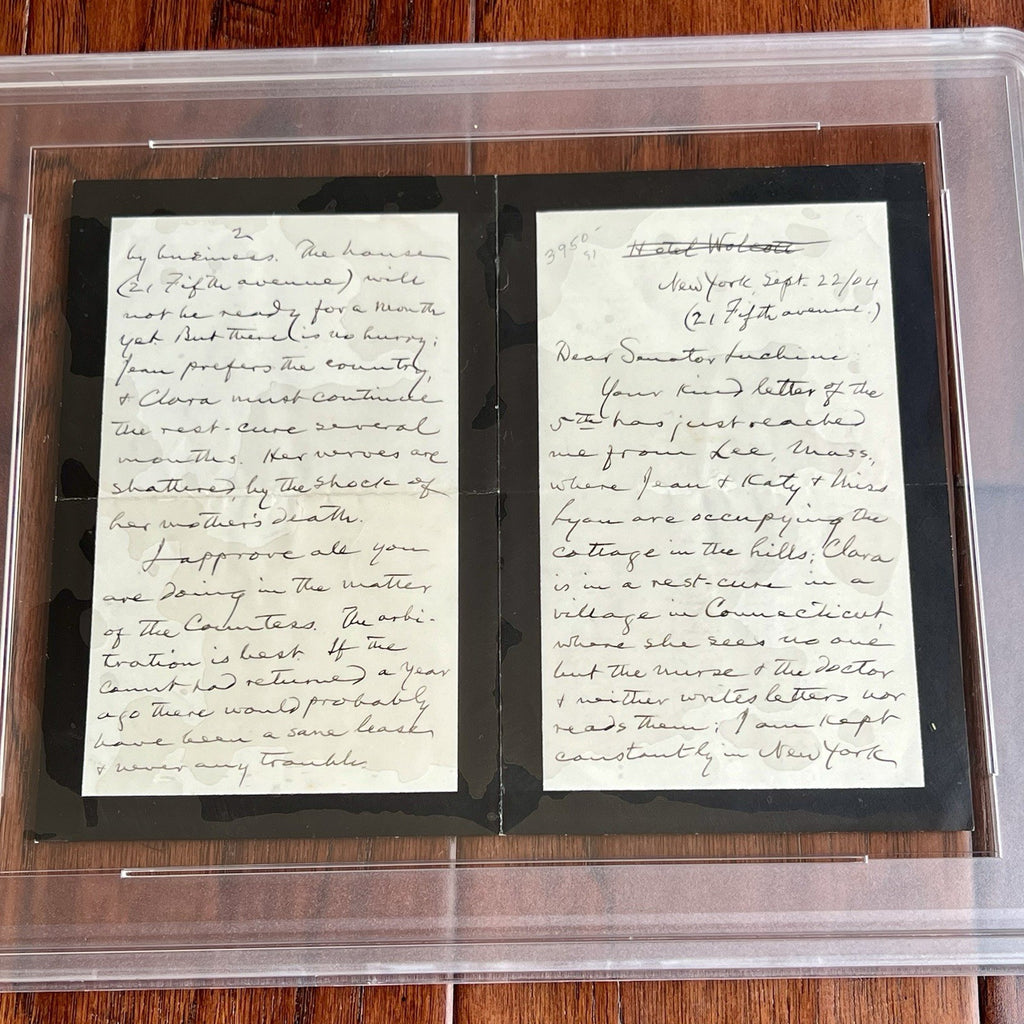 3950-
91
Hotel Wolcott
New York, Sept. 22/04
(21 Fifth avenue.)
Dear Senator Luchini:
Your kind letter of the
5th has just reached
me from Lee, Mass,
where Jean & Katy & Miss
Lyon are occupying the
cottage in the hills; Clara
is in a rest-cure in a
village in Connecticut,
where she sees no one
but the nurse & the doctor
& neither writes letters nor
reads them; I am kept
constantly in New York
2
by business. The house
(21 Fifth avenue) will
not be ready for a month
yet. But there is no hurry;
Jean prefers the country,
& Clara must continue
the rest-cure several
months. Her nerves are
shattered, by the shock of
her mother's death.
I approve all you
are doing in the matter
of the Countess. The arbi-
tration is best. If the
count had returned a year
ago there would probably
have been a sane lease,
& never any trouble.